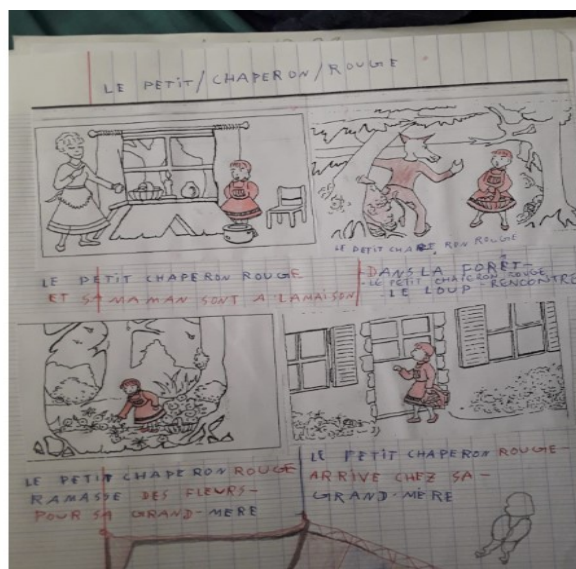 LE PETIT/CHAPERON/ROUGE
LE PETIT CHAPERON ROUGE
ET SA MAMAN SONT A LAMAISON
LE PETIT CHAPE RON ROUGE
-DANS LA FORÊT-
-LE PETIT CHAPERON ROUGE
LE LOUP-RENCONTRE
LE PETIT CHAPERON ROUGE
RAMASSE DES FLEURS-
POUR SA GRAND-MERE
LE PETIT CHAPERON ROUGE-
ARRIVE CHEZ SA-
GRAND-MERE